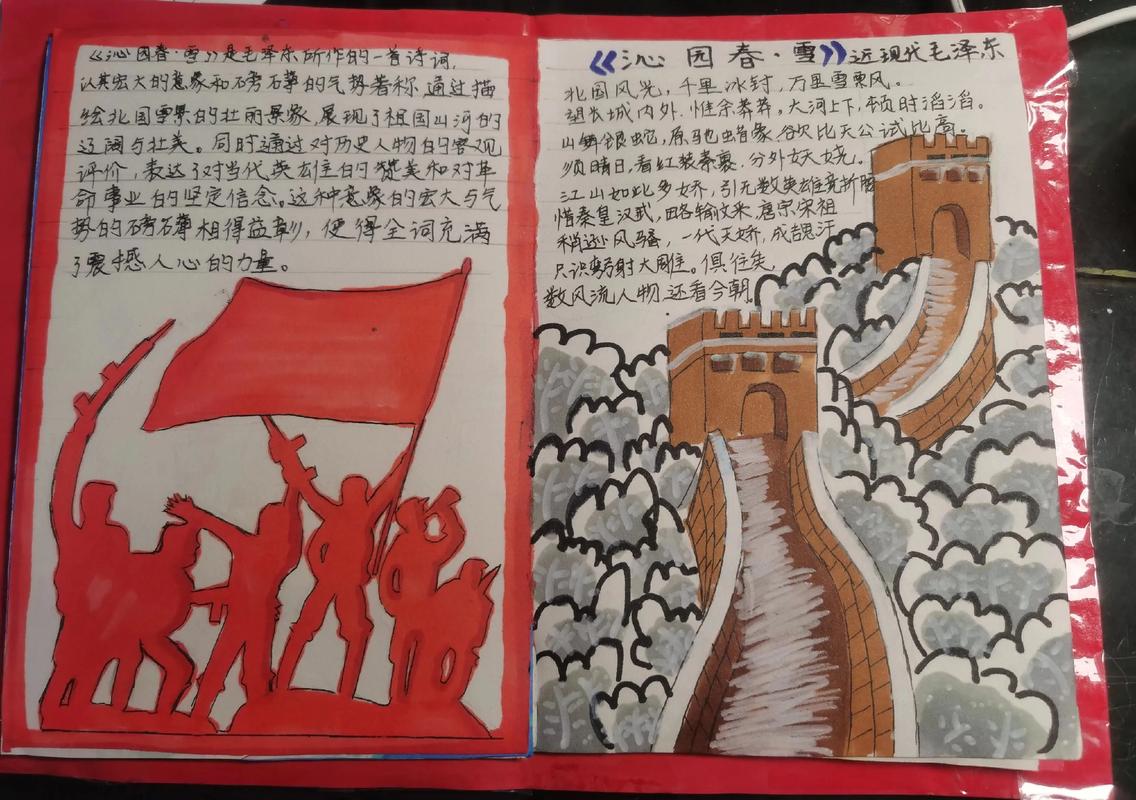 《沁园春·雪》是毛泽东所作的一首诗词,
以其宏大的意象和磅礴的气势著称,通过描
绘北国雪景的壮丽景象,展现了祖国山河的
辽阔与壮美。同时通过对历史人物的客观
评价,表达了对当代英雄的赞美和对革
命事业的坚定信念。这种意象的宏大与气
势的磅礴相得益彰,使得全词充满
了震撼人心的力量。
《沁园春·雪》近现代毛泽东
北国风光,千里冰封,万里雪飘。
望长城内外,惟余莽莽,大河上下,顿时滔滔。
山舞银蛇,原驰蜡象,欲比天公试比高。
须晴日,看红装素裹,分外妖娆。
江山如此多娇,引无数英雄竞折腰
惜秦皇汉武,略输文采,唐宗宋祖
稍逊风骚,一代天娇,成吉汗
只识弯射大雕。俱往矣,
数风流人物,还看今朝。